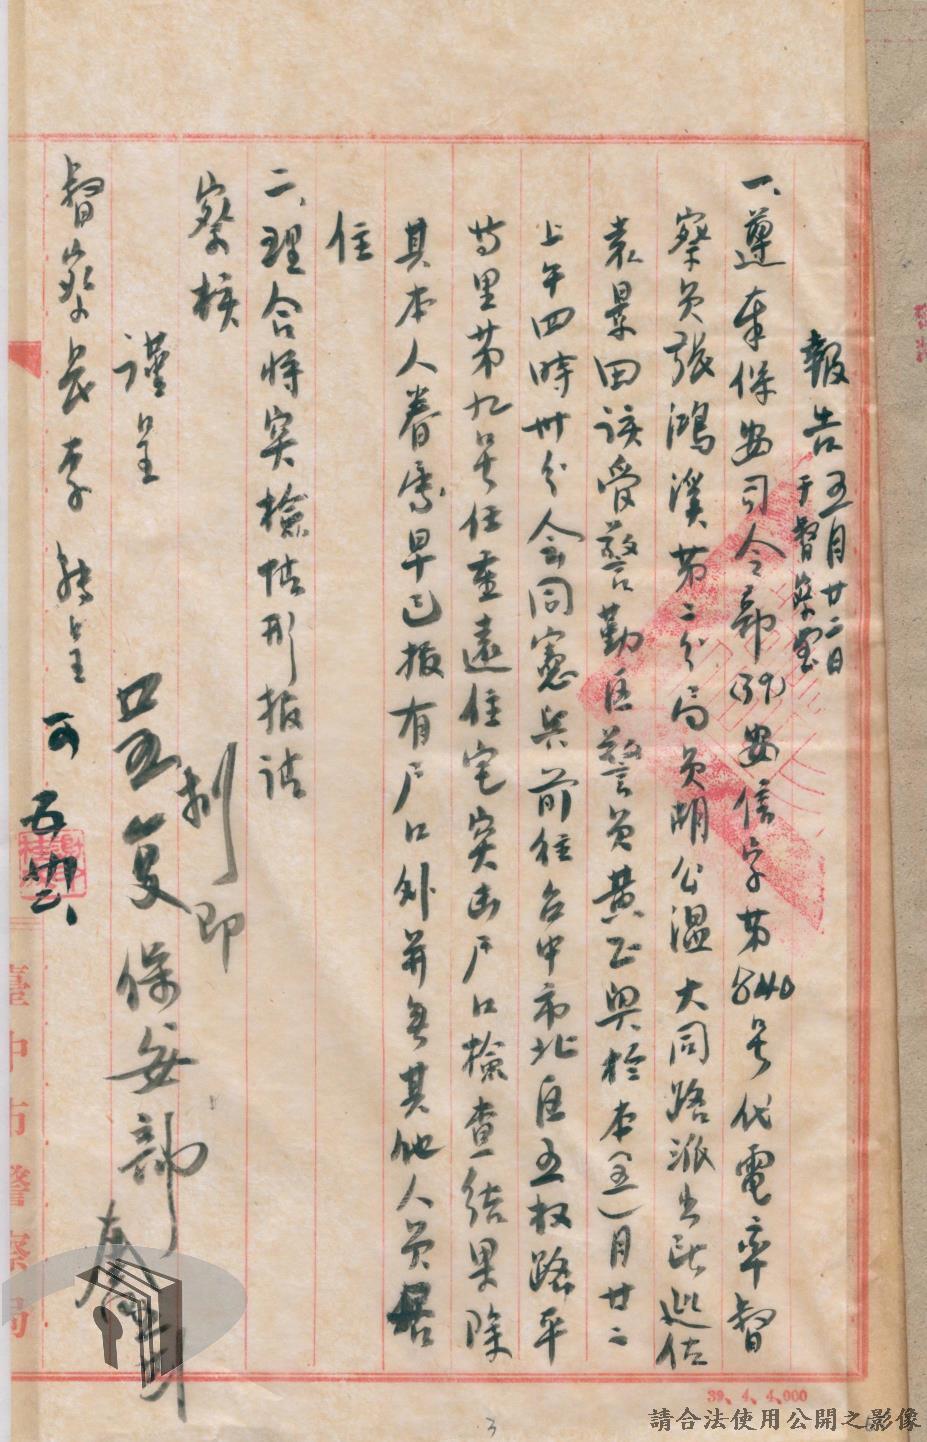 報告 五月廿二日
于督察室
一、遵奉保安司令部(39)安信字第840号代電率督
察員張鴻溪第二分局員胡公溫大同路派出所巡佐
袁景田該受警勤区警員黃正興於本(五)月廿二
上午四時卅分会同憲兵前往台中市北区五权路平
等里第九号任重遠住宅突击户口檢查结果除
其本人眷屬早已报有户口外并無其他人員居
住
二、理合将突檢情形报請
察核
謹呈
督察長李 轉呈
可
即
五复保安部
臺中市警察局
39、4、4,000
3
請合法使用公開之影像